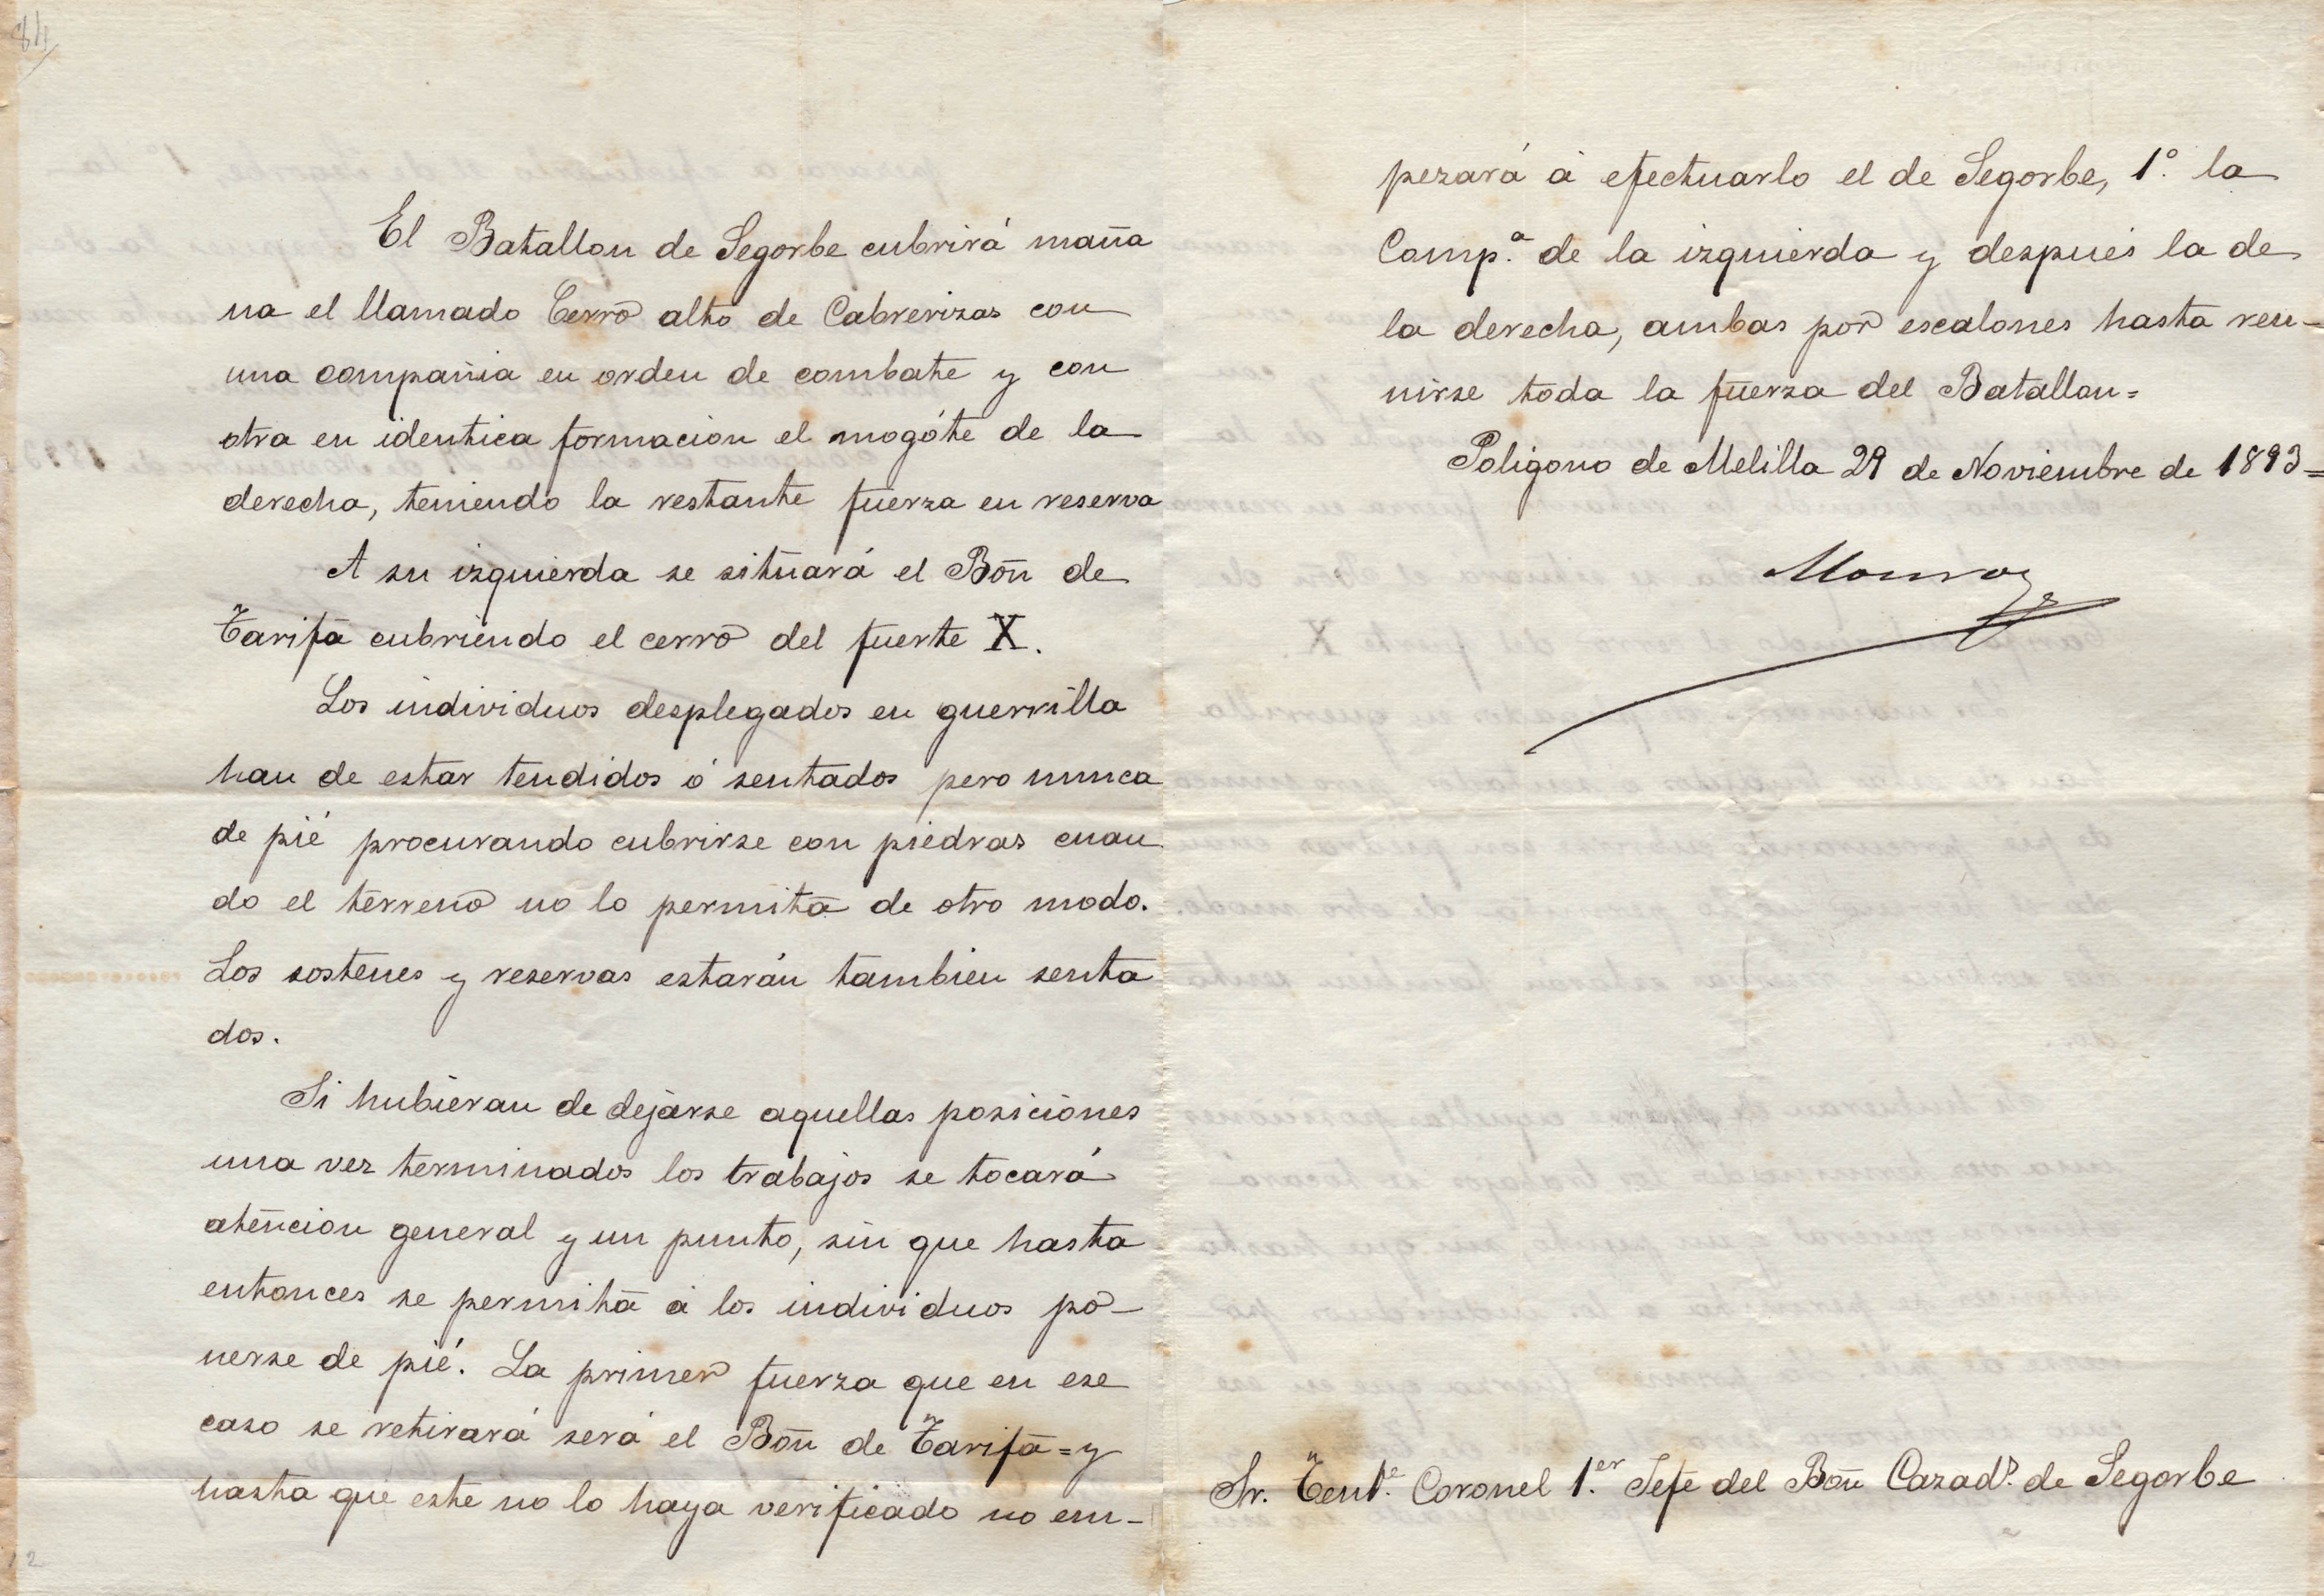 84
El Batallon de Segorbe cubrirá maña
na el llamado Cerro alto de Cabrerizas con
una compañia en orden de combate y con
otra en identica formacion el mogóte de la
derecha, teniendo la restante fuerza en reserva
A su izquierda se situará el Bōn de
Tarifa cubriendo el cerro del fuerte X.
Los individuos desplegados en guerrilla
han de estar tendidos ó sentados pero nunca
de pié procurando cubrirse con piedras cuan
do el terreno no lo permita de otro modo.
Los sostenes y reservas estarán tambien senta
dos.
Si hubieran de dejarse aquellas posiciones
una vez terminados los trabajos se tocará
atencion general y un punto, sin que hasta
entonces se permita á los individuos po-
nerse de pié. La primer fuerza que en ese
caso se retirará será el Bōn de Tarifa = y
hasta que este no lo haya verificado no em-
12
pezará á efectuarlo el de Segorbe, 1º. la
Comp.ª de la izquierda y después la de
la derecha, ambas por escalones hasta reu-
nirse toda la fuerza del Batallon =
Poligono de Melilla 29 de Noviembre de 1893 =
Monroy
Sr. Tent.e Coronel 1.er Jefe del Bōn Cazad.s de Segorbe